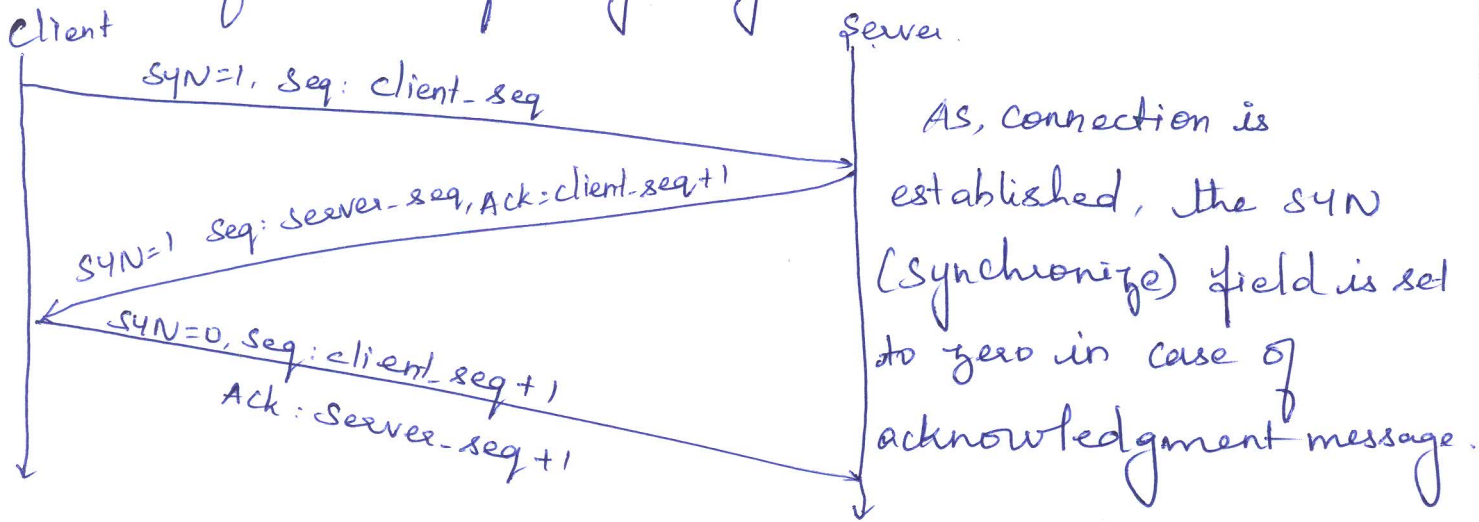 Client
Server.
SYN=1, Seq: client_seq
SYN=1 Seq: server_seq, Ack: client_seq+1
SYN=0, Seq: client_seq+1
Ack: Server_seq+1
As, connection is
established, the SYN
(synchronize) field is set
to zero in case of
acknowledgment message.